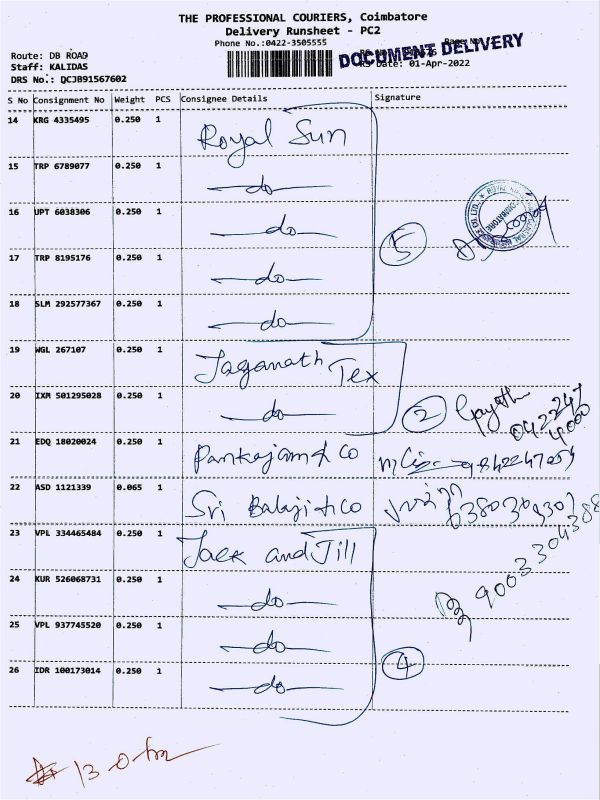 THE PROFESSIONAL COURIERS, Coimbatore
Delivery Runsheet - PC2
Phone No.:0422-3505555
DOCUMENT DELIVERY
Route: DB ROAD
Staff: KALIDAS
Date: 01-Apr-2022
DRS No.: QCJB91567602
S No Consignment No Weight PCS Consignee Details Signature
14 KRG 4335495 0.250 1 Royal Sun
15 TRP 6789077 0.250 1 do
16 UPT 6038306 0.250 1 do
5
17 TRP 8195176 0.250 1 do
18 SLM 292577367 0.250 1 do
19 WGL 267107 0.250 1 Jaganath Tex
20 IXM 501295028 0.250 1 do
2
21 EDQ 18020024 0.250 1 Pankajam & Co
22 ASD 1121339 0.065 1 Sri Balaji & Co
23 VPL 334465484 0.250 1 Jack and Jill
9003304388
24 KUR 526068731 0.250 1 do
25 VPL 937745520 0.250 1 do
4
26 IDR 100173014 0.250 1 do
13